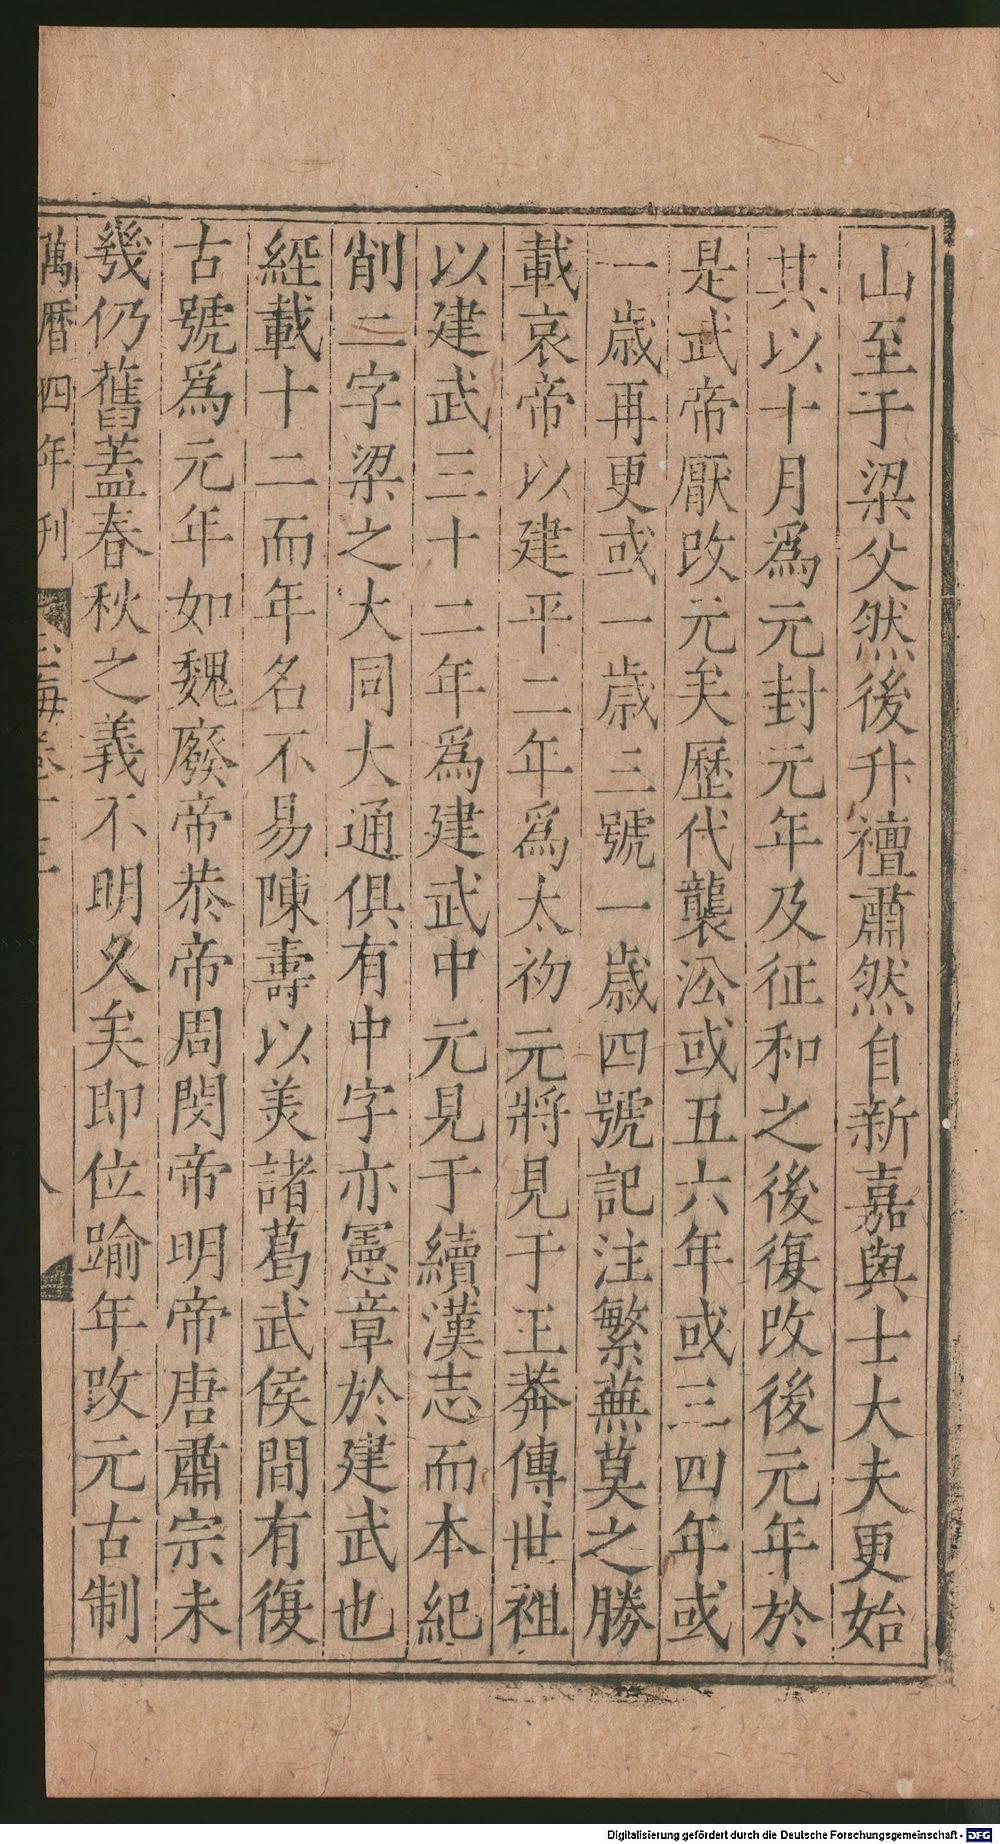 山至于梁父然後升禮肅然自新嘉與士大夫更始
其以十月爲元封元年及征和之後復改後元年於
是武帝厭改元矣歷代襲㳂或五六年或三四年或
一歲再更或一歲三號一歲四號記注繁蕪莫之勝
載哀帝以建平二年爲太初元將見于王莽傳世祖
以建武三十二年爲建武中元見于續漢志而本紀
削二字梁之大同大通俱有中字亦憲章於建武也
經載十二而年名不易陳壽以美諸葛武侯間有復
古號爲元年如魏廢帝恭帝周閔帝明帝唐肅宗未
幾仍舊蓋春秋之義不明久矣即位踰年改元古制
萬曆四年刊
海卷十三
八
Digitalisierung gefördert durch die Deutsche Forschungsgemeinschaft - DFG